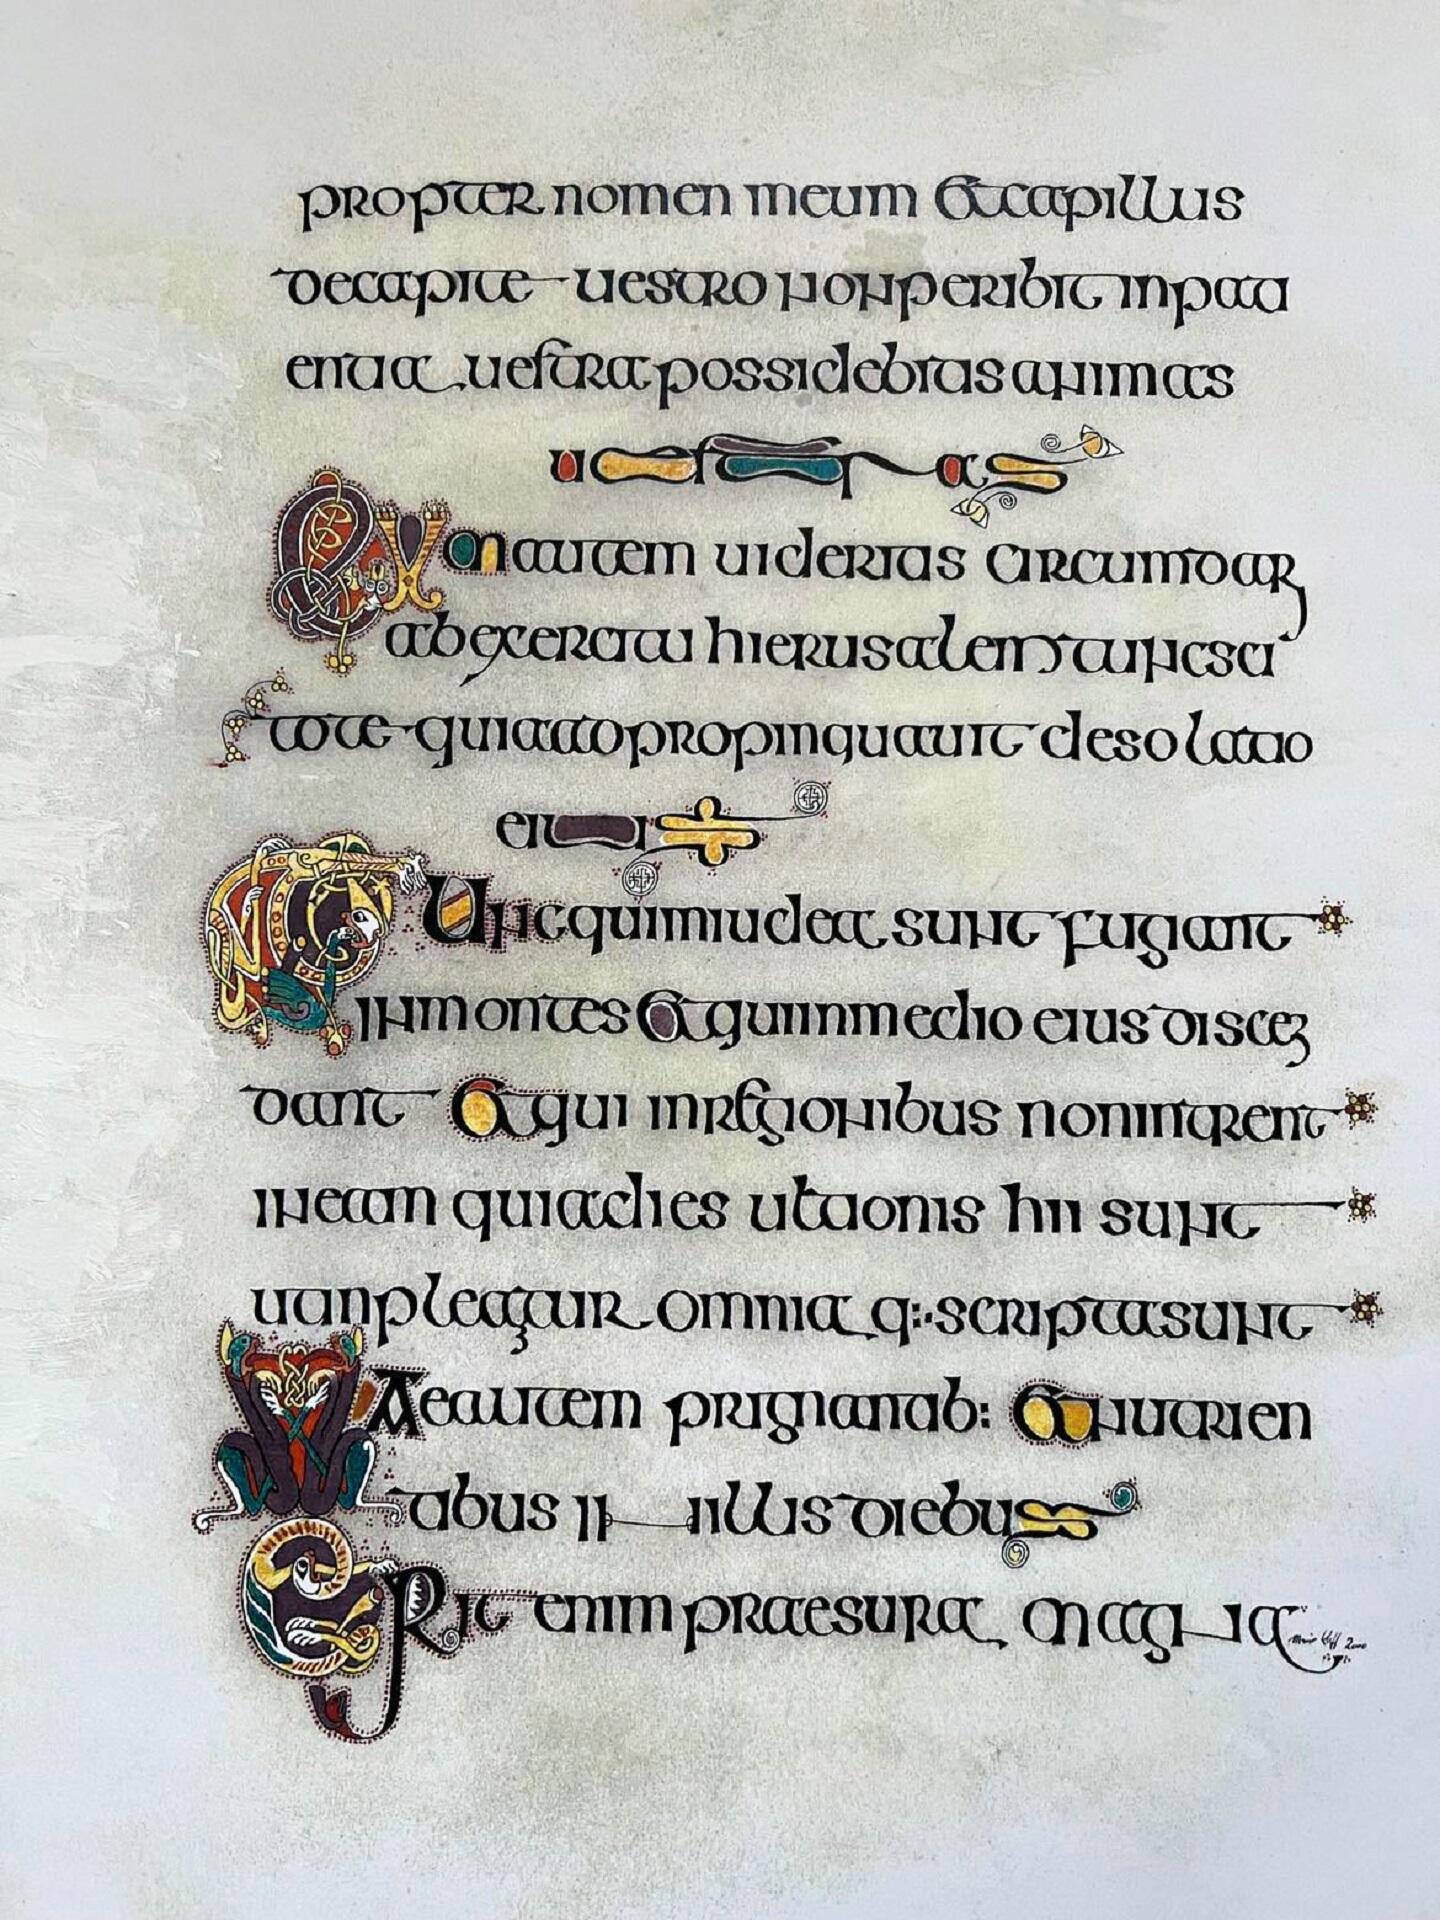 propter nomen meum et capillus
de capite uestro non peribit in pati
entia uestra possidebitis animas
uestras
Cum autem uideritis circumdari
ab exercitu hierusalem tunc sci
tote quia adpropinquauit desolatio
eius
Tunc qui in iudea sunt fugiant
in montes et qui in medio eius disce
dant et qui in regionibus non intrent
in eam quia dies ultionis hii sunt
ut inpleantur omnia q: scripta sunt
Vae autem prignantib: et nutrien
tibus in illis diebus
Erit enim praesura magna
2000